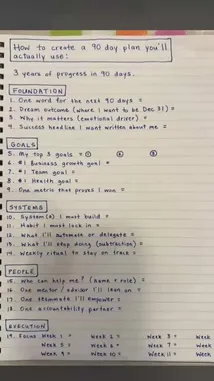 How to create a 90 day plan you'll
actually use:
3 years of progress in 90 days.
FOUNDATION
1. One word for the next 90 days =
2. Dream outcome (where I want to be Dec 31) =
3. Why it matters (emotional driver) =
4. Success headline I want written about me =
GOALS
5. My top 3 goals = ① ② ③
6. #1 Business growth goal =
7. #1 Team goal =
8. #1 Health goal =
9. One metric that proves I won =
SYSTEMS
10. System(s) I must build =
11. Habit I must lock in =
12. What I'll automate or delegate =
13. What I'll stop doing (subtraction) =
14. Weekly ritual to stay on track =
PEOPLE
15. Who can help me? (name + role) =
16. One mentor / advisor I'll lean on =
17. One teammate I'll empower =
18. One accountability partner =
EXECUTION
19. Focus Week 1 = Week 2 = Week 3 = Week
Week 5 = Week 6 = Week 7 = Week
Week 9 = Week 10 = Week 11 = Week